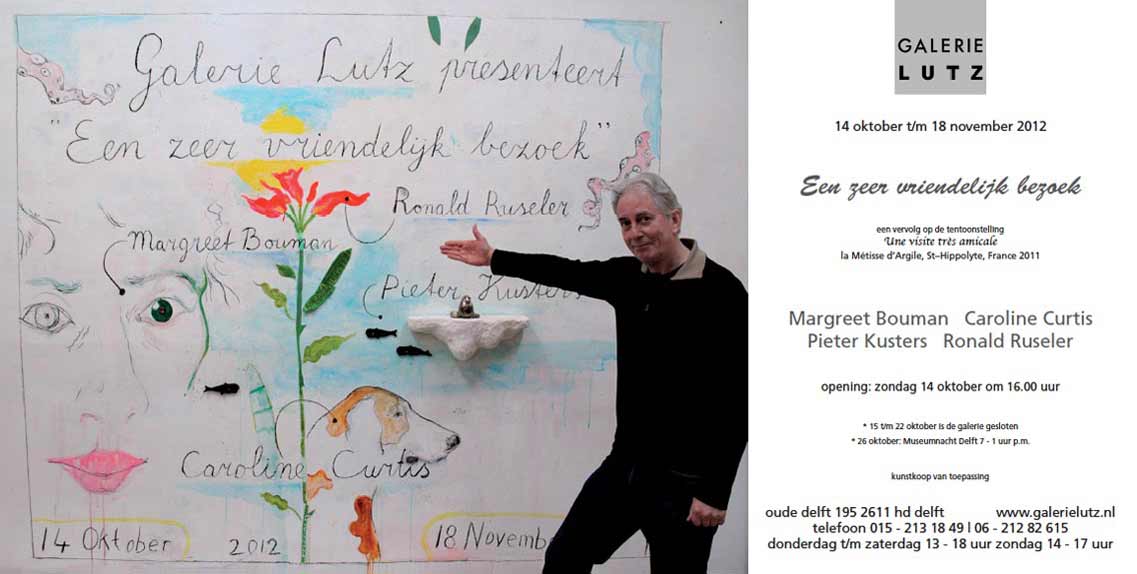 Galerie Lutz presenteert
"Een zeer vriendelijk bezoek"
Ronald Ruseler
Margreet Bouman
Pieter Kusters
Caroline Curtis
14 Oktober 2012 18 Novembe
GALERIE
LUTZ
14 oktober t/m 18 november 2012
Een zeer vriendelijk bezoek
een vervolg op de tentoonstelling
Une visite très amicale
la Métisse d'Argile, St–Hippolyte, France 2011
Margreet Bouman Caroline Curtis
Pieter Kusters Ronald Ruseler
opening: zondag 14 oktober om 16.00 uur
* 15 t/m 22 oktober is de galerie gesloten
* 26 oktober: Museumnacht Delft 7 - 1 uur p.m.
kunstkoop van toepassing
oude delft 195 2611 hd delft www.galerielutz.nl
telefoon 015 - 213 18 49 | 06 - 212 82 615
donderdag t/m zaterdag 13 - 18 uur zondag 14 - 17 uur